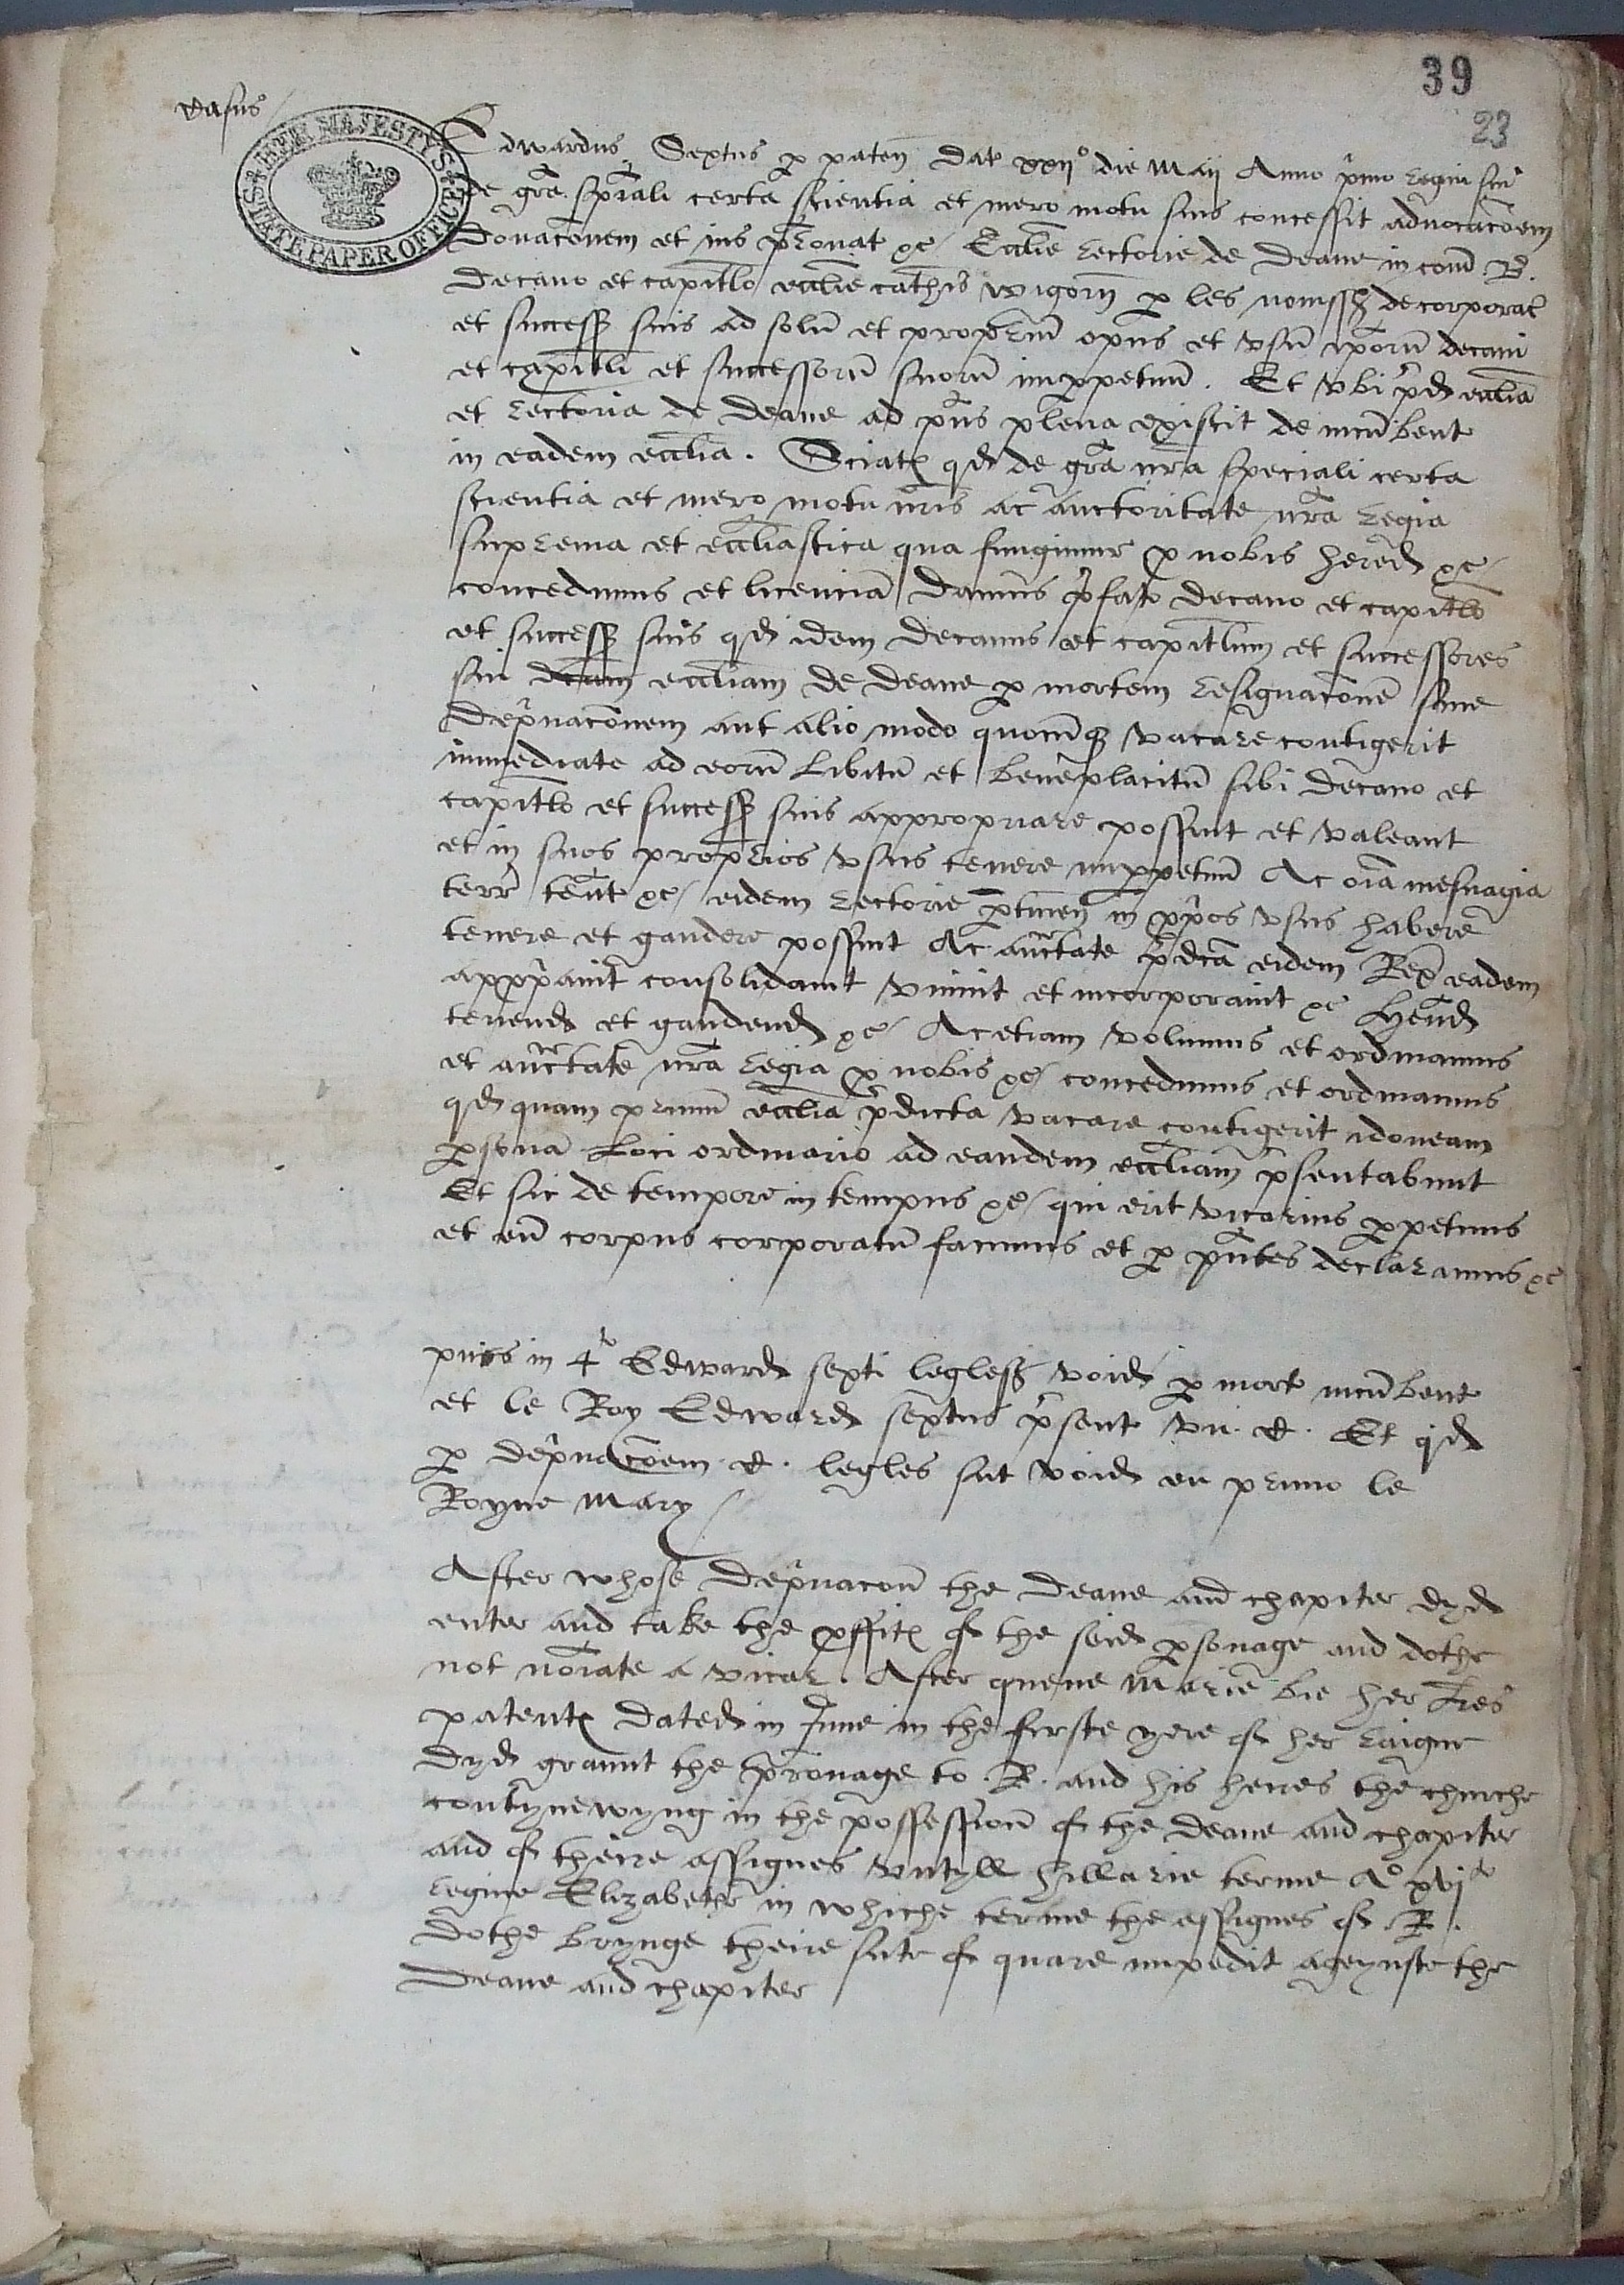 39
23
Casus
HER MAJESTY'S STATE PAPER OFFICE
Edwardus Sextus p paten dat xxijº die Maij Anno primo regni sui
de grā spiali certa scientia et mero motu suis concessit advocacōem
Donacōnem et ius pronat &c Ecclie Rectorie de Deane in com B.
Decano et capitlo ecclie cathis Wigorn p les nomssz de corporat
et success suis ad solū et proprium opus et vsū ipōrū decani
et capitli et successorū suorū imppetuū. Et vbi prd ecclia
et rectoria de Deane ad pns plena existit de incūbent
in eadem ecclia. Sciat qd de grā nrā speciali certa
scientia et mero motu nris ac auctoritate nrā regia
suprema et eccliastica qua fungimur p nobis hered &c
concedimus et licenciā Damus pfato Decano et capitlo
et success suis qd idem Decanus et capitlum et successores
sui dcam eccliam de Deane p mortem resignacōnē sive
Deprivacōnem aut alio modo quocūq vacare contigerit
immediate ad eorū libitū et beneplacitū sibi Decano et
capitlo et success suis appropriare possint et valeant
et in suos proprios vsus tenere imppetuū Ac oīa mesuagia
terr tent &c eidem rectorie ptinen in pprios vsus habere
tenere et gaudere possint Ac auctate pdcā eidem Rex eadem
appprīavit consolidavit vnivit et incorporavit &c Hend
tenend et gaudend &c Ac etiam volumus et ordinamus
et auctate nrā regia p nobis &c concedimus et ordinamus
qd quam primū ecclia pdicta vacare contigerit idoneam
psonā Loci ordinario ad eandem eccliam psentabunt
Et sic de tempore in tempus &c qui erit vicarius ppetuus
et eū corpus corporatū facimus et p pntes declaramus &c
puis in 4to Edward sexti legless void p mort incūbent
et le Roy Edward sextus psent vn. C. Et qd
p deprivacōem C. legles fut void en primo le
Royne Mary
After whose deprivacoū the Deane and chapiter dyd
enter and take the pffitℯ of the seid psonage and dothe
not noīate a vicar. After quene Marie bie her lres
patentℯ dated in June in the firste yere of her raigne
dyd graunt the pronage to .R. and his heires the churche
contynewyng in the possessioū of the Deane and chapiter
and of theire assignes vntyll Hillarie terme Aº xvjto
regine Elizabethe in whiche terme the assignes of .R.
dothe brynge theire sute of quare impedit ageynste the
Deane and chapiter